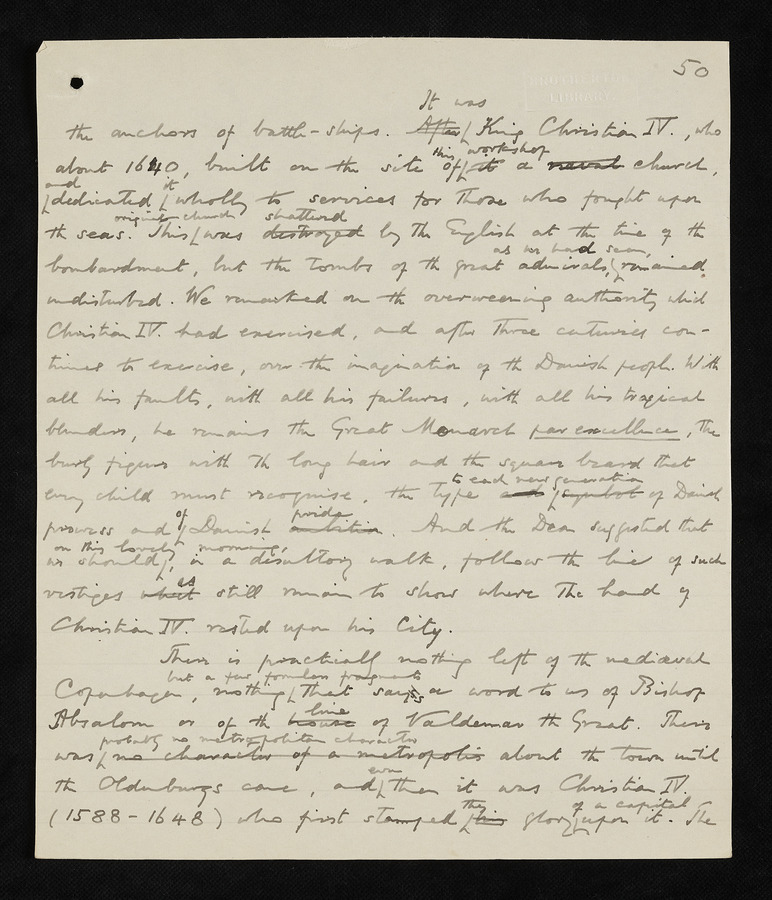 50
It was
the anchors of battle-ships. After King Christian IV., who
this workshop
about 1640, built on the site of it a naval church,
and it
dedicated wholly to services for those who fought upon
original church shattered
the seas. This was destroyed by the English at the time of the
as we had seen,
bombardment, but the tombs of the great admirals, remained
undisturbed. We remarked on the overweening authority which
Christian IV. had exercised, and after three centuries con-
tinues to exercise, over the imagination of the Danish people. With
all his faults, with all his failures, with all his tragical
blunders, he remains the Great Monarch par excellence, the
burly figure with the long hair and the square beard that
to each new generation
every child must recognise, the type and symbol of Danish
of pride
prowess and Danish ambition. And the Dean suggested that
on this lovely morning,
we should, in a desultory walk, follow the line of such
as
vestiges what still remain to show where the hand of
Christian IV. rested upon his City.
There is practically nothing left of the mediæval
but a few formless fragments
Copenhagen, nothing that says a word to us of Bishop
line
Absalom or of the house of Valdemar the Great. There
probably no metropolitan character
was no character of a metropolis about the town until
even
the Oldenburgs came, and then it was Christian IV.
the of a capital
(1588-1648) who first stamped his glory upon it. The